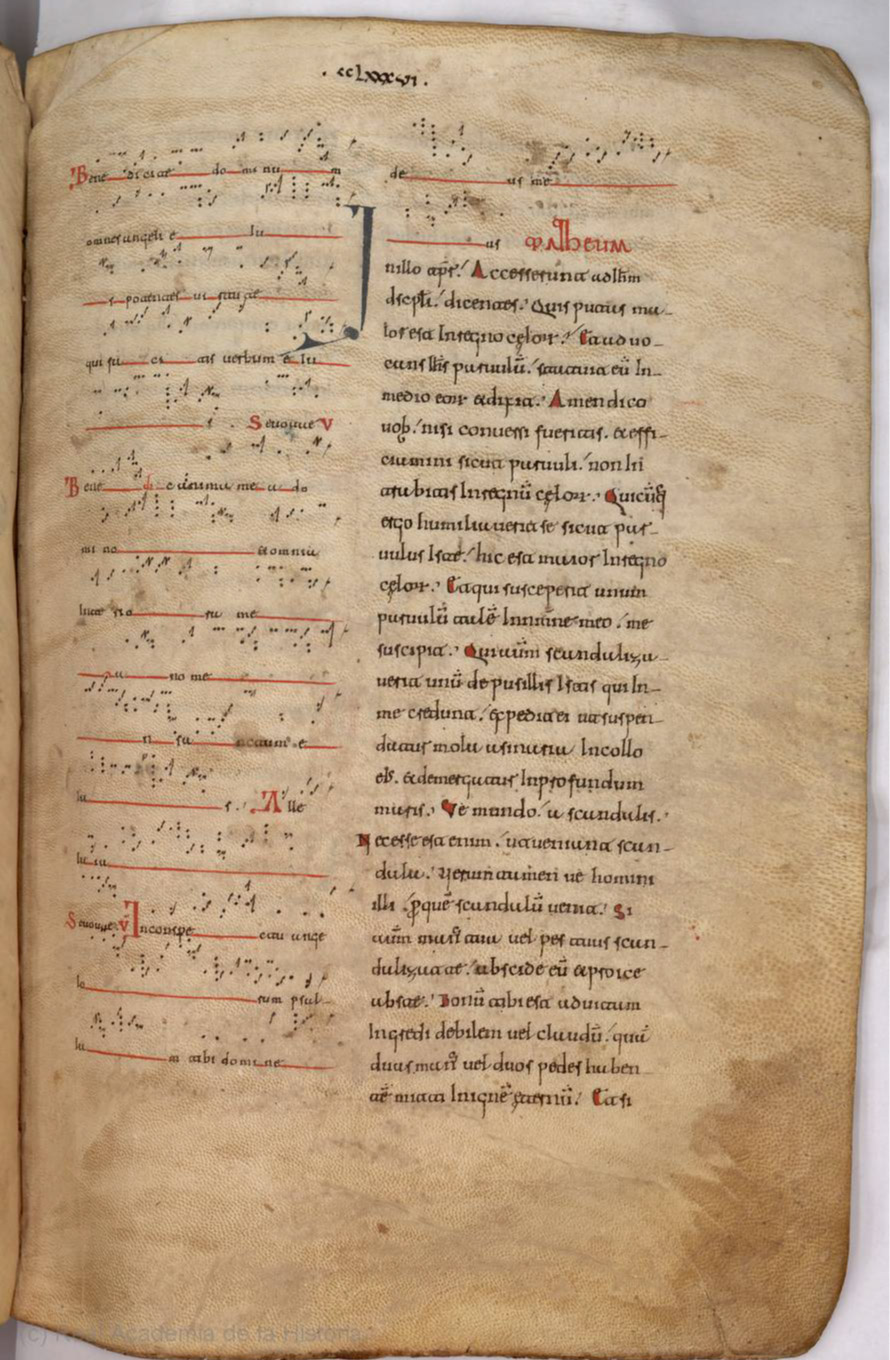 . cclxxxvi .
Bene dicite do mi nu m
omnes angeli e iu
s potentes ui rtute
qui fa ci tis uerbum e iu
s . Seuouae V
Bene dic anima mea do
mi no et omnia
inte rio ra me
a no me
n sa nctum e
iu s . Alle
lu ia
Seuouae V In conspe ctu ange
lo rum psal
la m tibi domine
de us me
us MATHEUM
In illo tp̄r. Accesserunt ad Ihm
dscpli. dicentes. Quis putas ma
ior est In regno cęlorum. Et aduo
cans Ihs paruulū. statuit eū In
medio eorum et dixit. Amen dico
uob. nisi conuersi fueritis. et effi
ciamini sicut paruuli. non In
trabitis In regnū cęlorum. Quicūq
ergo humiliauerit se sicut par
uulus Iste. hic est maior In regno
cęlorum. Et qui susceperit unum
paruulū talē In nomine meo. me
suscipit. Qui autm scandaliza
uerit unū de pusillis Istis qui In
me credunt. expedit ei ut suspen
datur mola asinaria In collo
eius. et demergatur In profundum
maris. Ve mundo. a scandalis.
Necesse est enim. ut ueniant scan
dala. Verumtamen ue homini
illi . p quē scandalū uenit. Si
autm manus tua uel pes tuus scan
dalizat te. abscide eū et proice
abs te. Bonū tibi est ad uitam
Ingredi debilem uel claudū. quā
duas man᷒ uel duos pedes haben
tē mitti In ignē ęternū. Et si